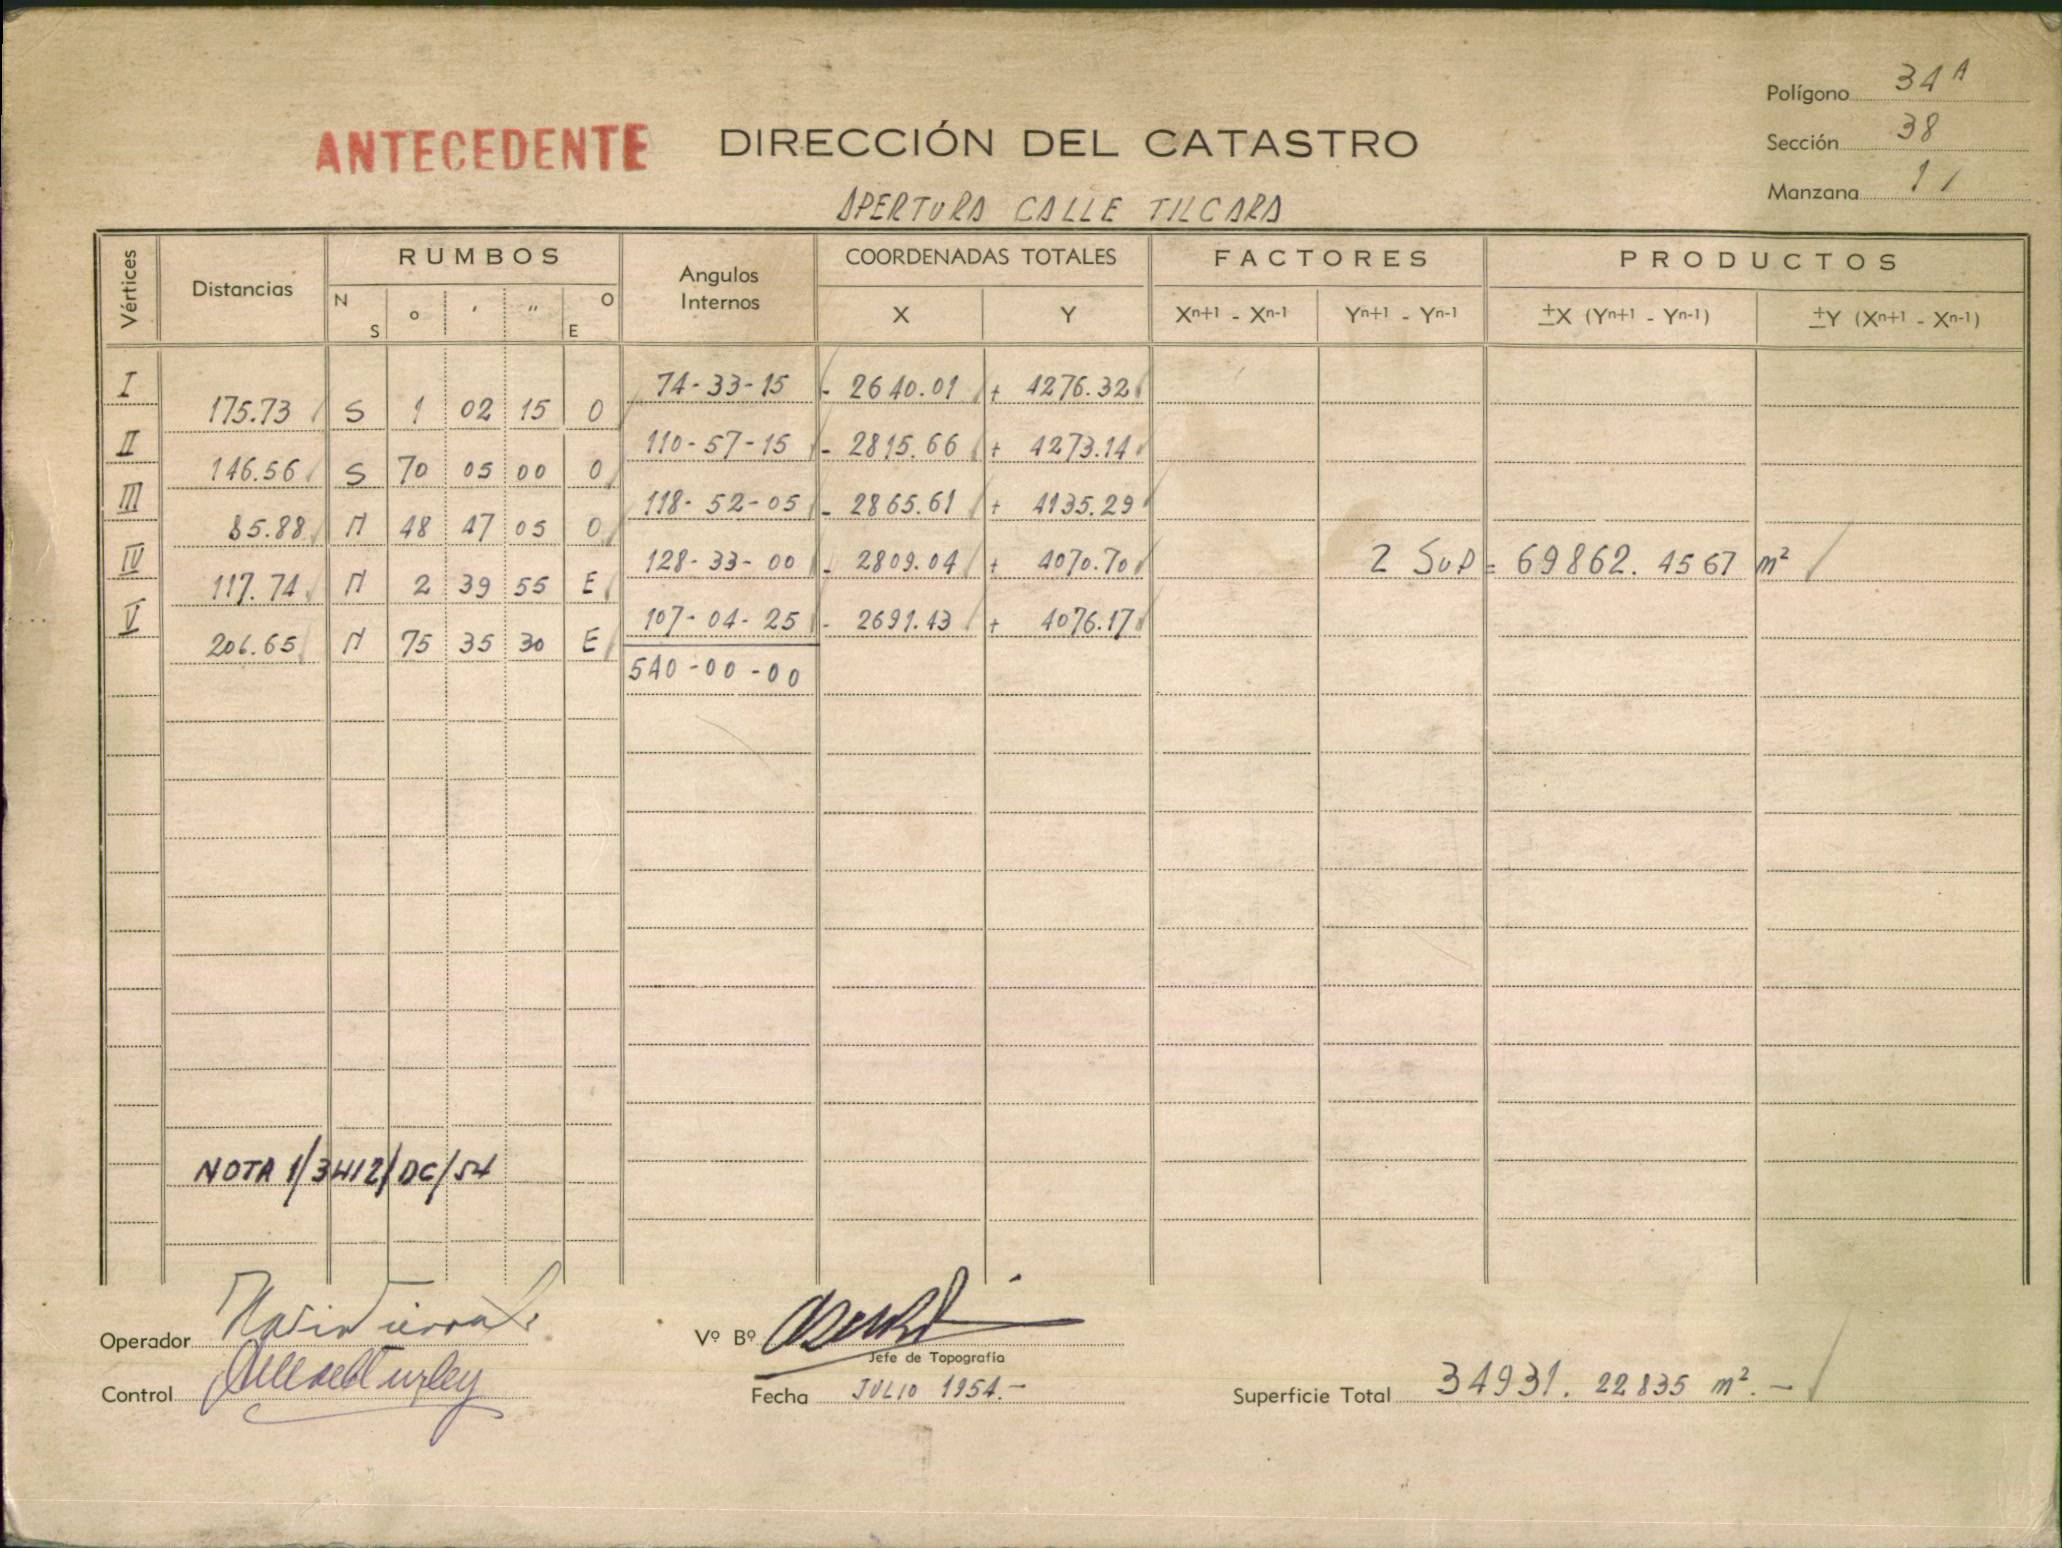 Polígono 34 A
ANTECEDENTE DIRECCIÓN DEL CATASTRO
Sección 38
Manzana 1
APERTURA CALLE TILCARA
Vértices Distancias RUMBOS Angulos Internos COORDENADAS TOTALES FACTORES PRODUCTOS
N S o ' " O E X Y Xn+1 - Xn-1 Yn+1 - Yn-1 ±X (Yn+1 - Yn-1) ±Y (Xn+1 - Xn-1)
I 74-33-15 - 2640.01 + 4276.32
175.73 S 1 02 15 O
II 110-57-15 - 2815.66 + 4273.14
146.56 S 70 05 00 O
III 118-52-05 - 2865.61 + 4135.29
85.88 N 48 47 05 O
IV 128-33-00 - 2809.04 + 4070.70 2 Sup = 69862.4567 m²
117.74 N 2 39 55 E
V 107-04-25 - 2691.43 + 4076.17
206.65 N 75 35 30 E
540-00-00
NOTA 1/3412/DC/54
Operador
Vº Bº
Jefe de Topografía
Control
Fecha JULIO 1954.-
Superficie Total 34931.22835 m².-